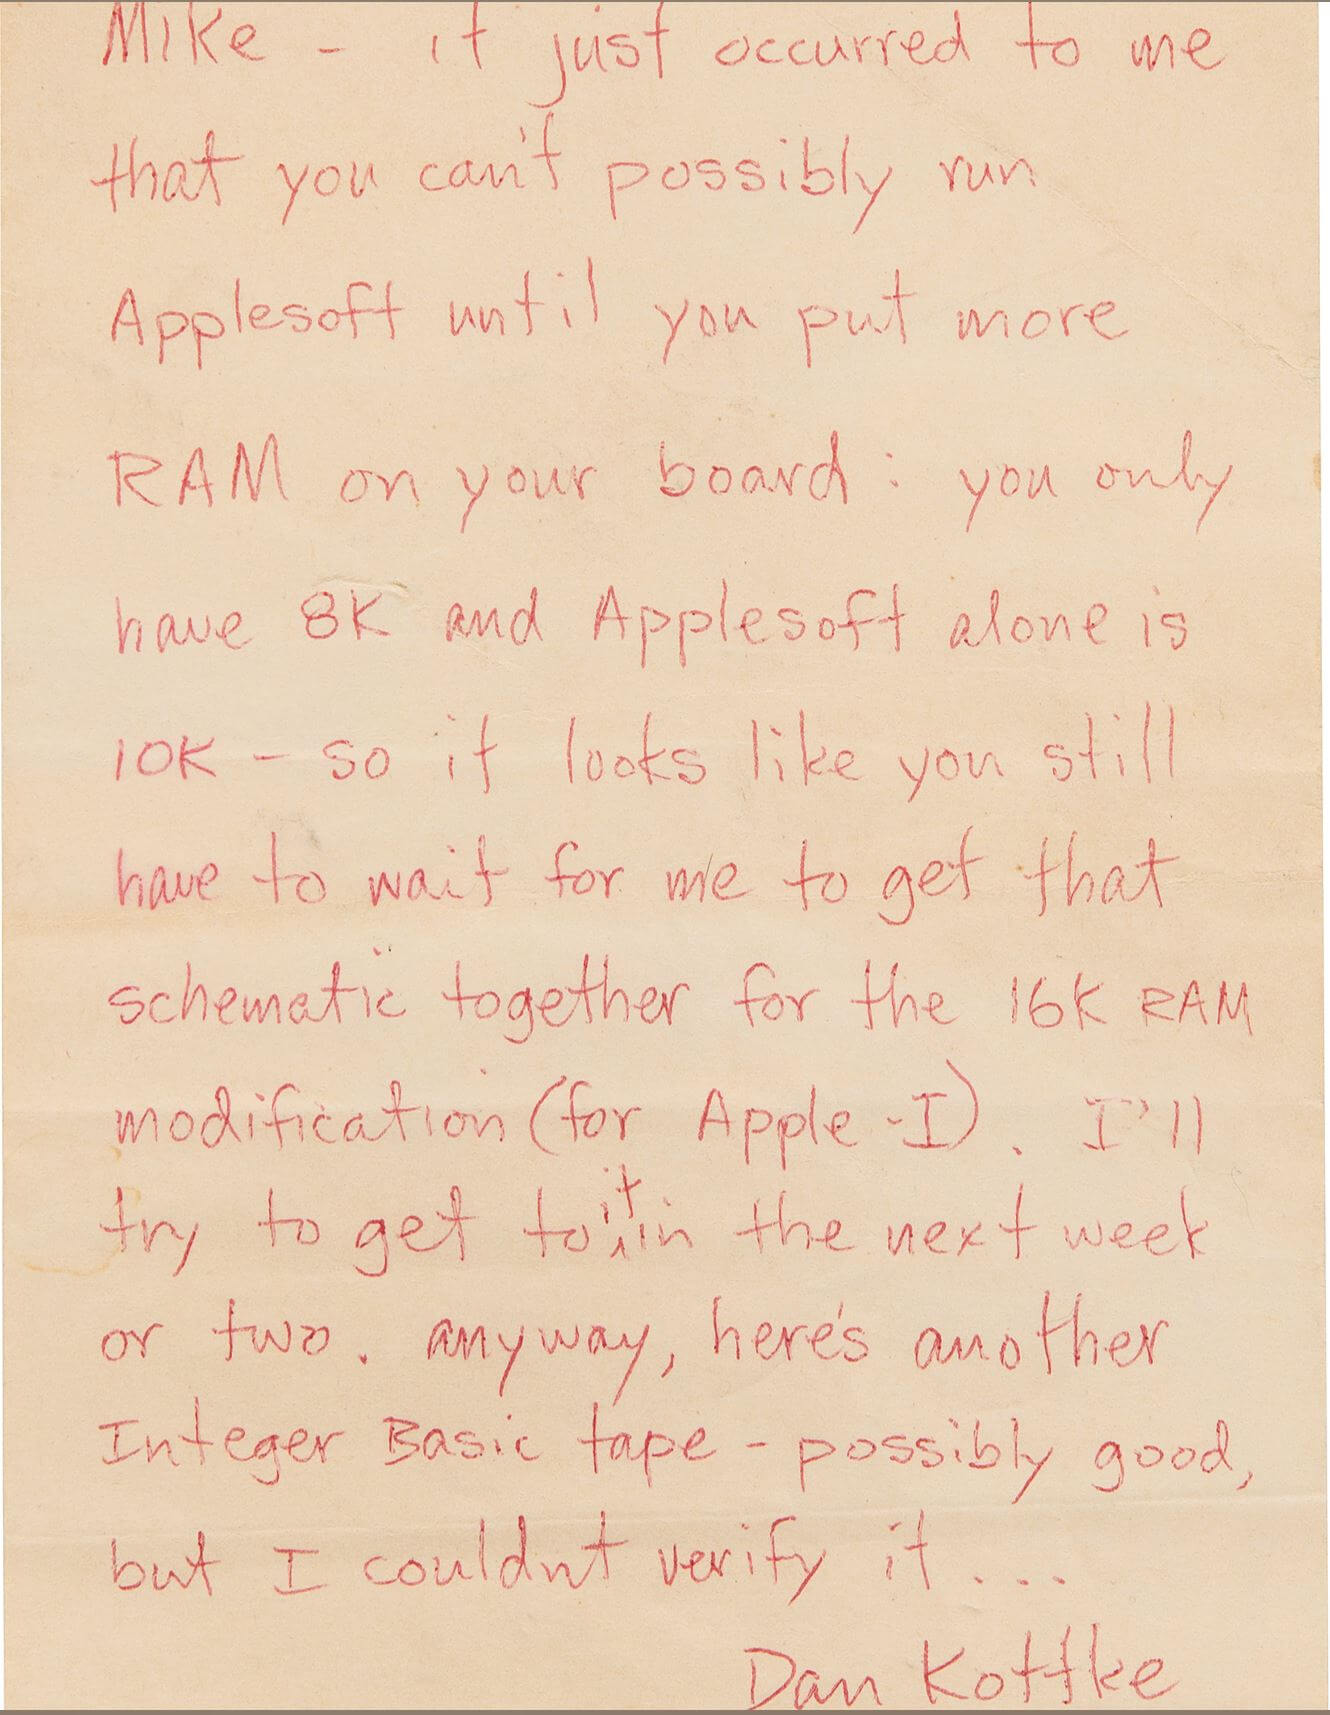 Mike - it just occurred to me
that you can't possibly run
Applesoft until you put more
RAM on your board: you only
have 8K and Applesoft alone is
10K - so it looks like you still
have to wait for me to get that
schematic together for the 16K RAM
modification (for Apple-I). I'll
try to get to it in the next week
or two. anyway, here's another
Integer Basic tape - possibly good,
but I couldnt verify it...
Dan Kottke